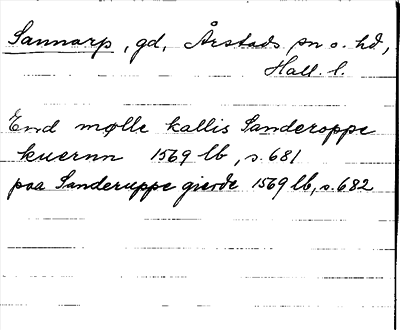 Sannarp, gd, Årstads sn o. hd,
Hall. l.
End mølle kallis Sanderoppe
kuernn 1569 lb, s. 681
paa Sanderuppe gierde 1569 lb, s. 682